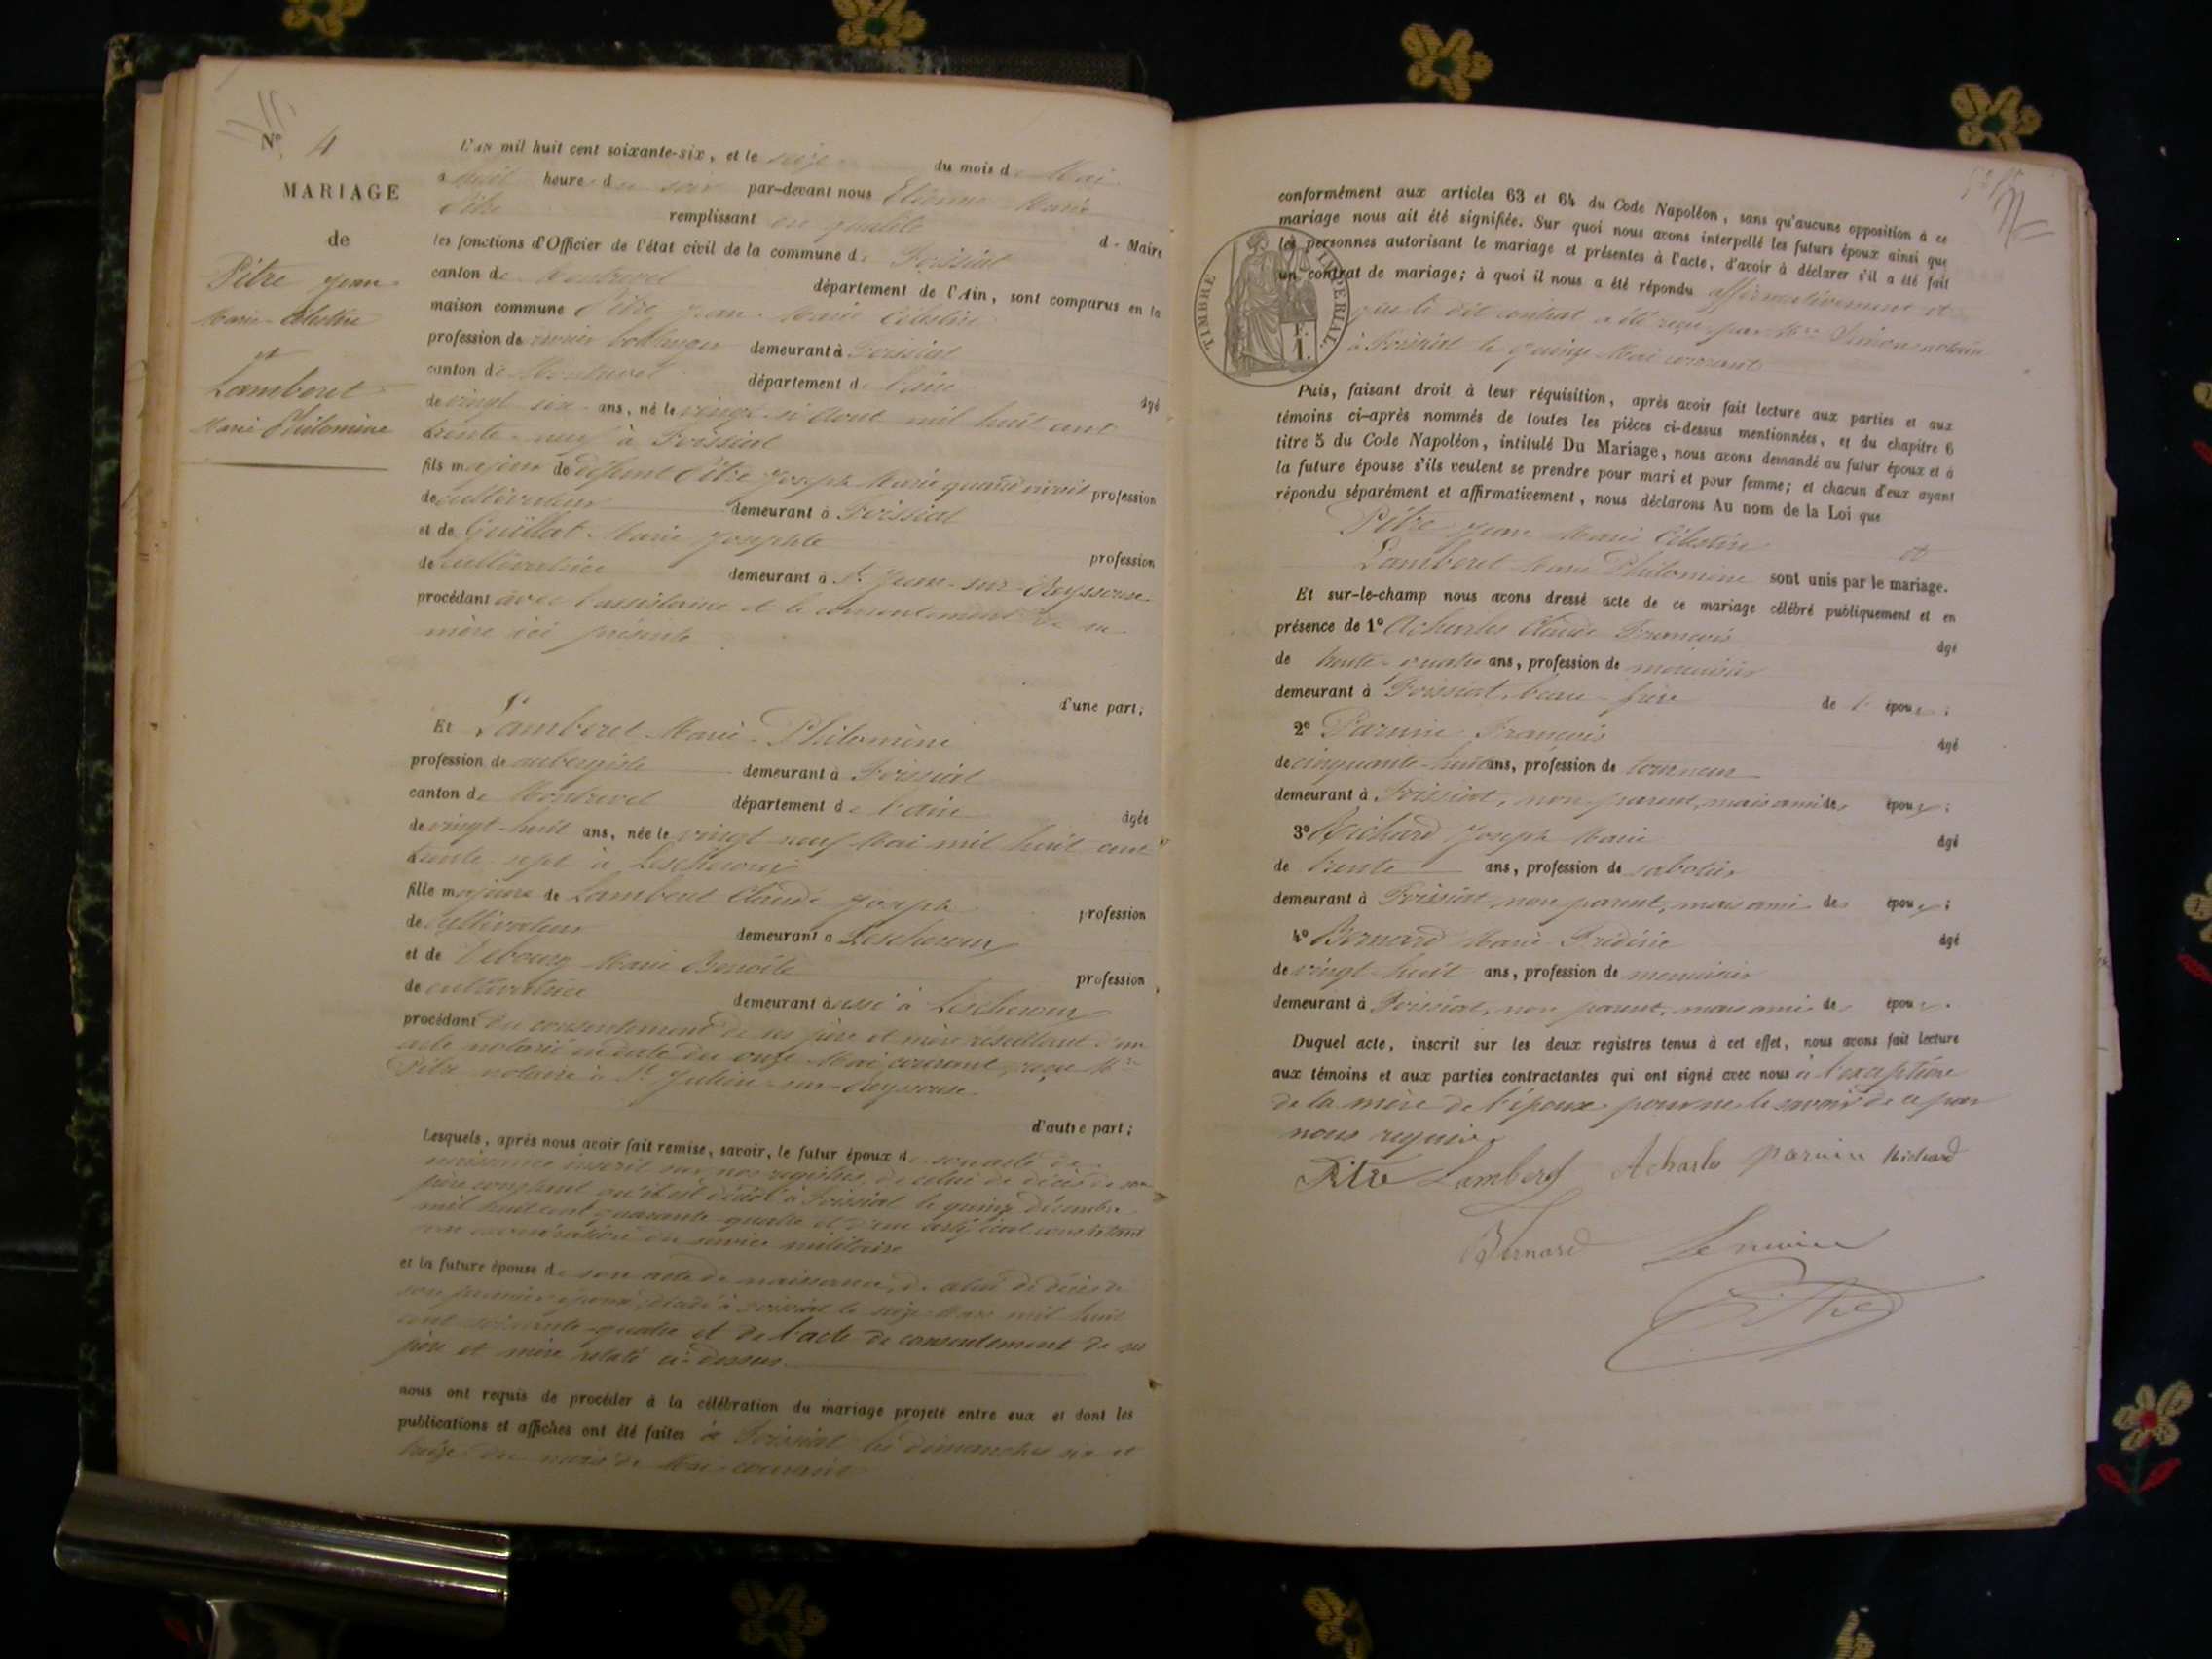 N° 4
MARIAGE
de
Pitre Jean
Marie Célestin
et
Lamberet
Marie Philomine
L'an mil huit cent soixante-six, et le seize du mois de Mai
à huit heure du soir par-devant nous Etienne Marie
Pitre remplissant en qualité de Maire
les fonctions d'Officier de l'état civil de la commune de Foissiat
canton de Montrevel département de l'Ain, sont comparus en la
maison commune Pitre Jean Marie Célestin
profession de boulanger demeurant à Foissiat
canton de Montrevel département de l'ain âgé
de vingt six ans, né le vingt Aout mil huit cent
trente-neuf à Foissiat
fils majeur de défunt Pitre Joseph Marie quand vivait profession
de cultivateur demeurant à Foissiat
et de Guillot Marie Josephte profession
de cultivatrice demeurant à St Jean-sur-Reyssouze
procédant avec l'assistance et le consentement de sa
mère ici présente
d'une part;
Et Lamberet Marie Philomine
profession de aubergiste demeurant à Foissiat
canton de Montrevel département de l'ain âgée
de vingt-huit ans, née le vingt neuf Mai mil huit cent
trente-sept à Lescheroux
fille majeure de Lamberet Claude Joseph profession
de Cultivateur demeurant à Lescheroux
et de Marie Benoîte profession
de cultivatrice demeurant à aussi à Lescheroux
procédant du consentement de ses père et mère résultant d'un
acte notarié en date du onze Mai courant, reçu Me
Pitre notaire à St Julien-sur-Reyssouze
d'autre part;
Lesquels, après nous avoir fait remise, savoir, le futur époux de son acte de
naissance inscrit sur nos registres, de celui de décès de son
père constatant qu'il est décédé à Foissiat le quinze décembre
mil huit cent quarante-quatre et d'un certificat constatant
son exonération du service militaire
et la future épouse de son acte de naissance, de celui de décès de
son premier époux, décédé à Foissiat le seize Mars mil huit
cent soixante-quatre et de l'acte de consentement de ses
père et mère relaté ci-dessus
nous ont requis de procéder à la célébration du mariage projeté entre eux et dont les
publications et affiches ont été faites à Foissiat les dimanches six et
treize du mois de Mai courant
conformément aux articles 63 et 64 du Code Napoléon, sans qu'aucune opposition à ce
mariage nous ait été signifiée. Sur quoi nous avons interpellé les futurs époux ainsi que
les personnes autorisant le mariage et présentes à l'acte, d'avoir à déclarer s'il a été fait
un contrat de mariage; à quoi il nous a été répondu affirmativement et
que le dit contrat a été reçu par Me Simon notaire
à Foissiat le quinze Mai courant
TIMBRE IMPERIAL
F.
1.
Puis, faisant droit à leur réquisition, après avoir fait lecture aux parties et aux
témoins ci-après nommés de toutes les pièces ci-dessus mentionnées, et du chapitre 6
titre 5 du Code Napoléon, intitulé Du Mariage, nous avons demandé au futur époux et à
la future épouse s'ils veulent se prendre pour mari et pour femme; et chacun d'eux ayant
répondu séparément et affirmativement, nous déclarons Au nom de la Loi que
Pitre Jean Marie Célestin et
Lamberet Marie Philomine sont unis par le mariage.
Et sur-le-champ nous avons dressé acte de ce mariage célébré publiquement et en
présence de 1° Acharles Claude François âgé
de trente-quatre ans, profession de menuisier
demeurant à Foissiat, beau-frère de l' époux;
2° Parnin François âgé
de cinquante-huit ans, profession de tourneur
demeurant à Foissiat, non parent, mais ami des époux;
3° Richard Joseph Marie âgé
de trente ans, profession de sabotier
demeurant à Foissiat, non parent, mais ami des époux;
4° Bernard Marie Frédéric âgé
de vingt-huit ans, profession de menuisier
demeurant à Foissiat, non parent, mais ami des époux.
Duquel acte, inscrit sur les deux registres tenus à cet effet, nous avons fait lecture
aux témoins et aux parties contractantes qui ont signé avec nous à l'exception
de la mère de l'époux pour ne le savoir de ce par
nous requise
Pitre Lamberet Acharles parnin Richard
Bernard Le maire
Pitre